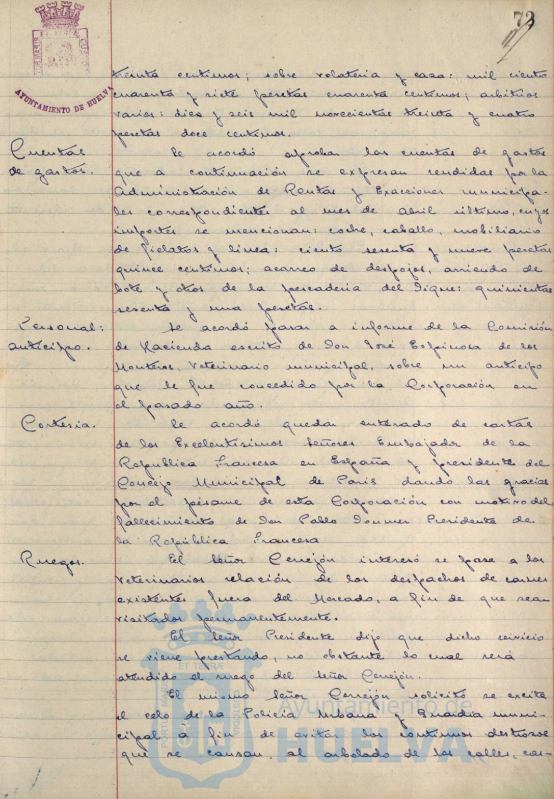 73
AYUNTAMIENTO DE HUELVA
treinta centimos; sobre volateria y caza: mil ciento
cuarenta y siete pesetas cuarenta centimos; arbitrios
varios: diez y seis mil novecientas treinta y cuatro
pesetas doce centimos.
Cuentas
de gastos.
Se acordó aprobar las cuentas de gastos
que a continuación se expresan rendidas por la
Administración de Rentas y Exacciones municipa-
les correspondientes al mes de abril último, cuyos
importes se mencionan: coche, caballo, mobiliario
de fielatos y linea: ciento sesenta y nueve pesetas
quince centimos; acarreo de despojos, arriendo de
bote y otros de la pescaderia del Dique: quinientas
sesenta y una pesetas.
Personal:
anticipo.
Se acordó pasar a informe de la Comisión
de Hacienda escrito de Don José Espinosa de los
Monteros, Veterinario municipal, sobre un anticipo
que le fue concedido por la Corporación en
el pasado año.
Cortesia.
Se acordó quedar enterado de cartas
de los Excelentisimos Señores Embajador de la
Republica Francesa en España y presidente del
Concejo Municipal de Paris dando las gracias
por el pésame de esta Corporación con motivo del
fallecimiento de Don Pablo Doumer Presidente de
la República Francesa
Ruegos.
El Señor Cerrejón interesó se pase a los
Veterinarios relación de los despachos de carnes
existentes fuera del Mercado, a fin de que sean
visitados permanentemente.
El Señor Presidente dijo que dicho servicio
se viene prestando, no obstante lo cual será
atendido el ruego del Señor Cerrejón.
El mismo Señor Cerrejón solicitó se excite
el celo de la Policía Urbana y Guardia muni-
cipal a fin de evitar los continuos destrozos
que se causan al arbolado de las calles, cas-
Ayuntamiento de
HUELVA